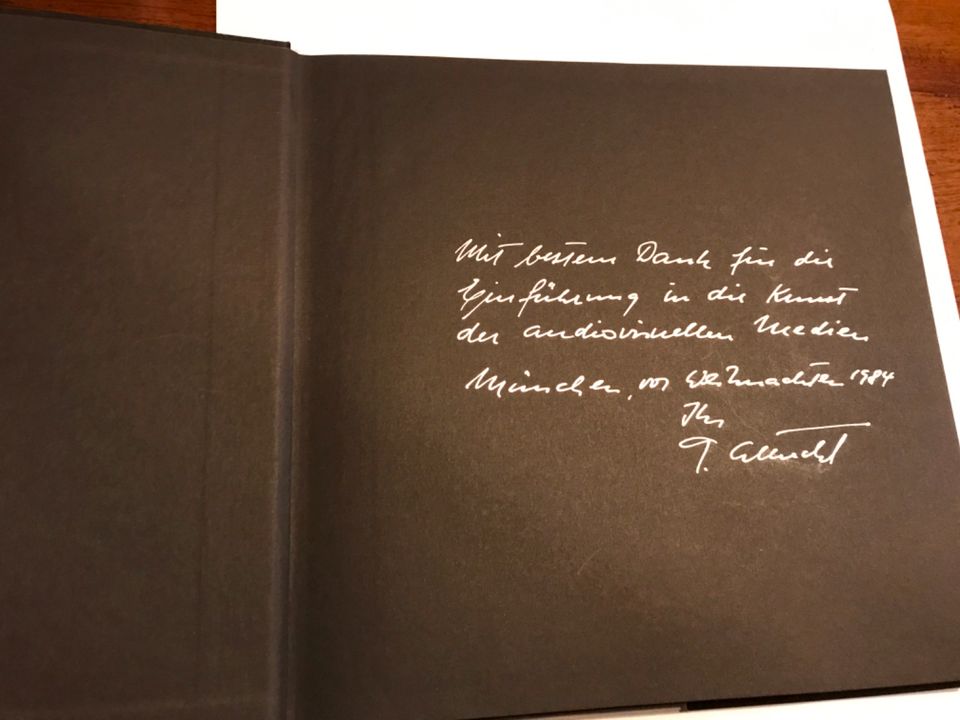 Mit bestem Dank für die
Einführung in die Kunst
der audiovisuellen Medien
München, vor Weihnachten 1984
Ihr